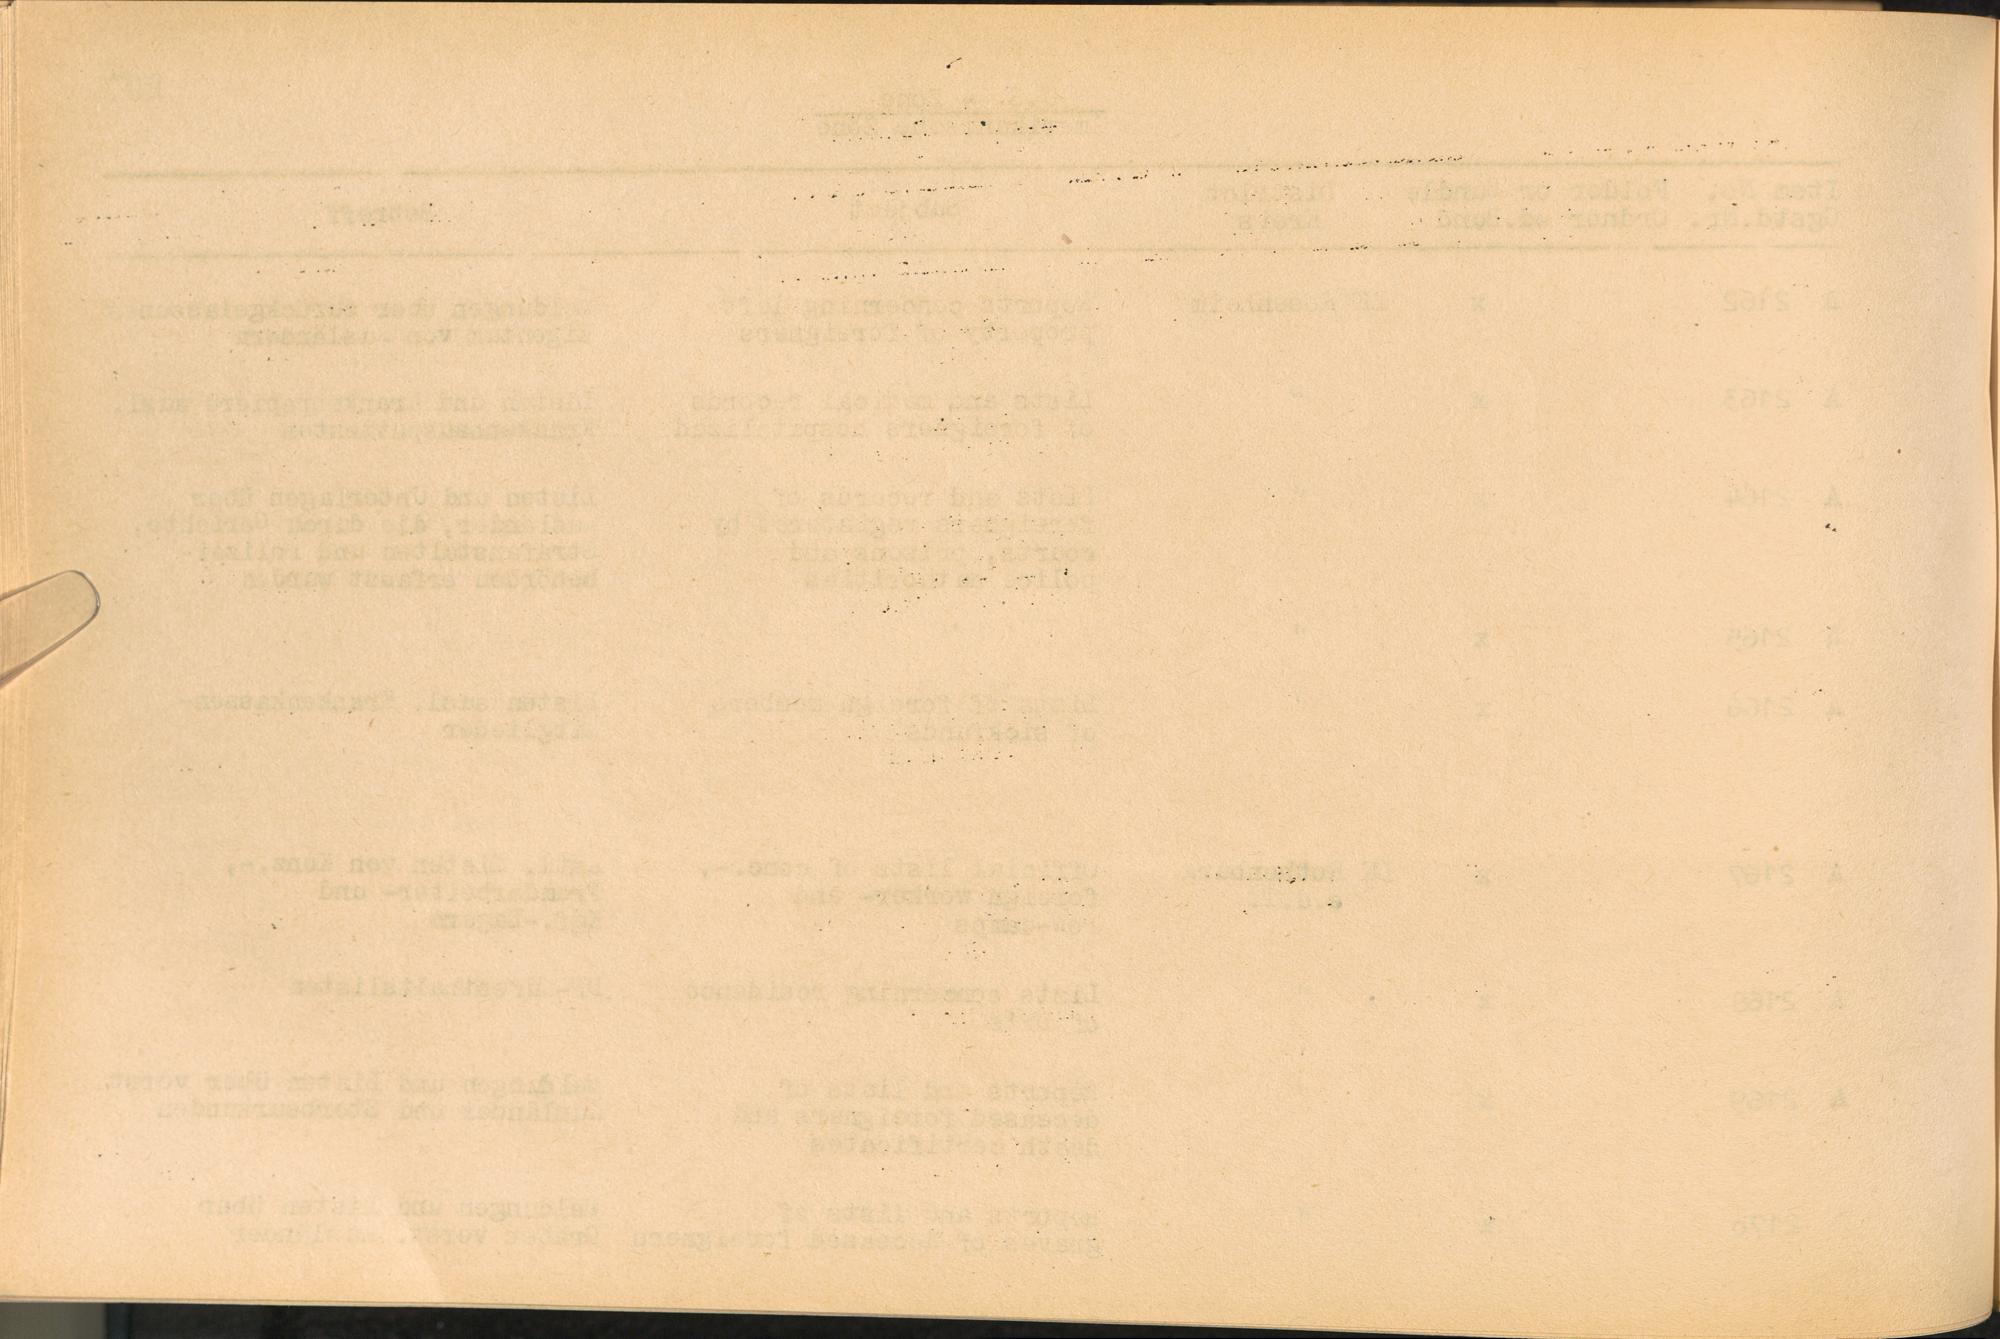 Item No. Folder or Bundle
Ggstd.Nr. Ordner od. Bund
Kreis
Subject
Betreff
A 2162 x LK Rosenheim
Reports concerning left
property of foreigners
Meldungen über zurückgelassenes
Eigentum von Ausländern
A 2163 x "
Lists and medical records
of foreigners hospitalized
Listen und Krankenpapiere ausl.
Krankenhauspatienten
A 2164 x "
Lists and records of
foreigners registered by
courts, prisons and
police authorities
Listen und Unterlagen über
Ausländer, die durch Gerichte,
Strafanstalten und Polizei-
behörden erfasst wurden
A 2165 x "
A 2166 x "
Lists of foreign members
of sickfunds
Listen ausl. Krankenkassen-
mitglieder
A 2167 x LK Rothenburg
o.d.T.
Official lists of conc.-,
foreign worker- and
POW-camps
Amtl. Listen von Konz.-,
Fremdarbeiter- und
Kgf.-Lagern
A 2168 x "
Lists concerning residence
of DP's
A 2169 x "
Reports and lists of
deceased foreigners and
death certificates
Meldungen und Listen über verst.
Ausländer und Sterbeurkunden
2170 x "
Reports and lists of
graves of deceased foreigners
Meldungen und Listen über
Gräber verst. Ausländer